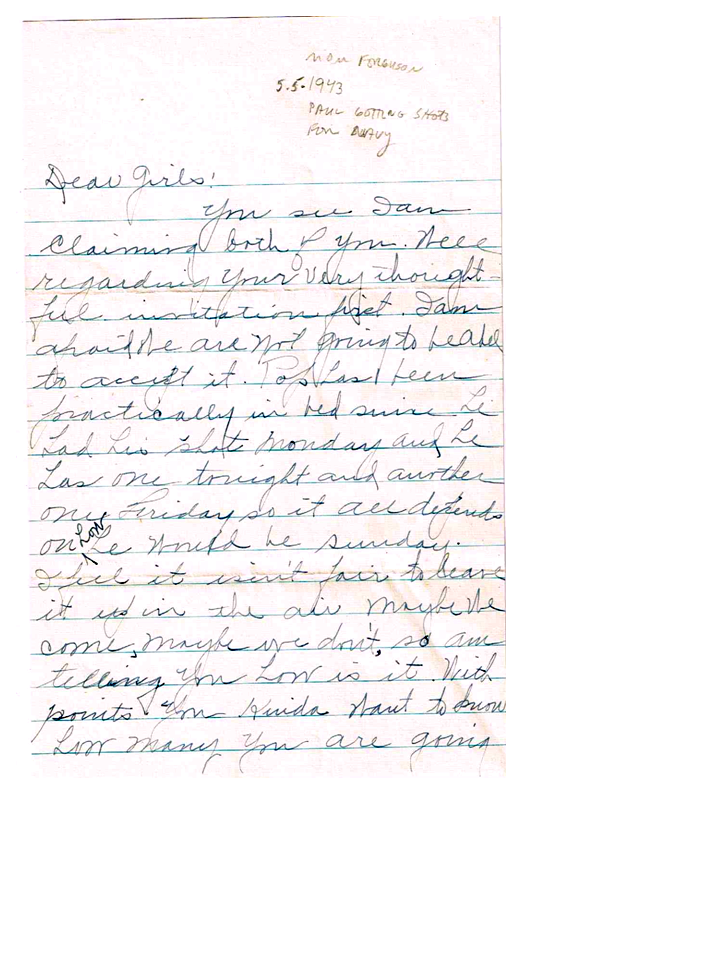 Mom Ferguson
5.5.1943
Paul Getting Shots
For Navy
Dear Girls!
You see I am
claiming both of you. Well
regarding your very thought-
ful invitation first. I am
afraid we are not going to be able
to accept it. Pop has been
practically in bed since he
had his shot Monday and he
has one tonight and another
one Friday so it all depends
on how he would be Sunday.
I feel it isn't fair to leave
it up in the air maybe we
come, maybe we don't, so am
telling you how is it. With
points you kinda want to know
how many you are going